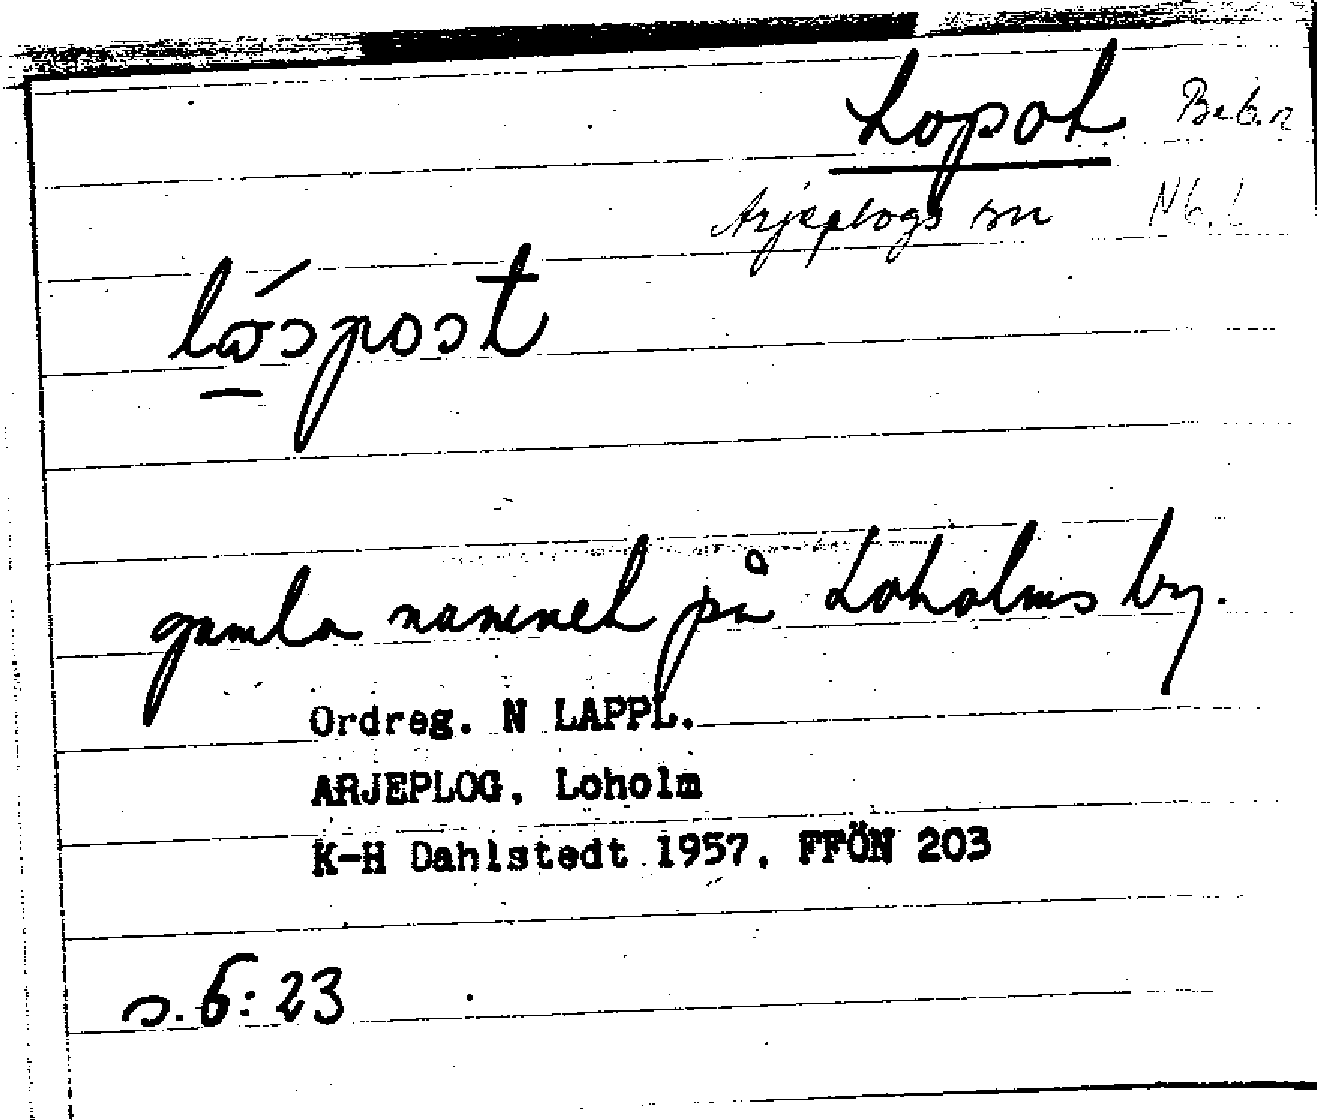 Lopot Beb.n
Arjeplogs sn Nb.l
gamla namnet på Loholms by.
Ordreg. N LAPPL.
ARJEPLOG, Loholm
K-H Dahlstedt 1957. FFÖN 203
s. 6:23